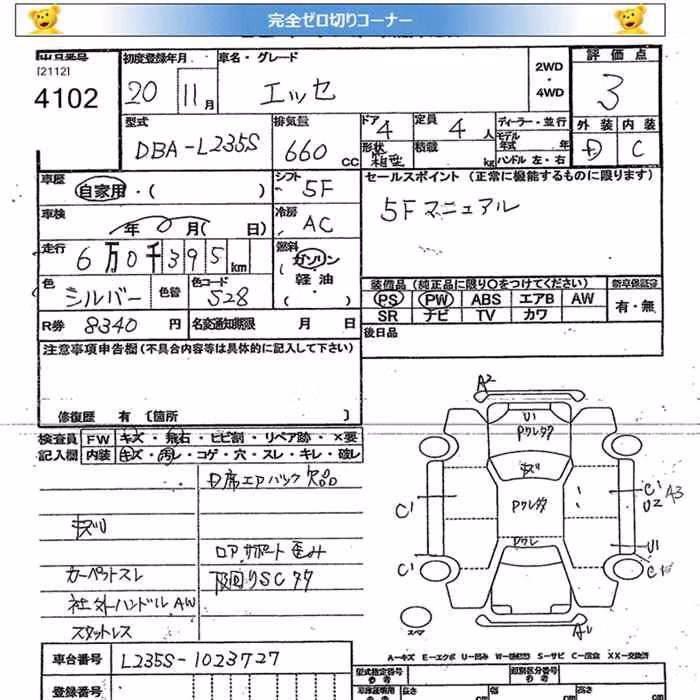 完全ゼロ切りコーナー
出品番号 初度登録年月 車名・グレード 2WD・4WD 評価点
[2112]
4102 20 11月 エッセ 3
型式 DBA-L235S 排気量 660cc ドア 4 定員 4人 ディーラー・並行 外装 D 内装 C
形状 箱型 積載 kg モデル年式 年 ハンドル 左・右
車歴 自家用・( ) シフト 5F セールスポイント (正常に機能するものに限ります)
車検 年 月( 日) 冷房 AC 5Fマニュアル
走行 6万0千395km 燃料 ガソリン 軽油
色 シルバー 色替 色コード S28 装備品 (純正品に限り○をつけてください) 新車保証書
PS PW ABS エアB AW 有・無
SR ナビ TV カワ
R券 8340円 名変通知期限 月 日 後日品
注意事項申告欄(不具合内容等は具体的に記入して下さい)
修復歴 有 〔箇所 〕
検査員 FW キズ・飛石・ヒビ割・リペア跡・×要
記入欄 内装 キズ・汚レ・コゲ・穴・スレ・キレ・破レ
D席エアバック欠品
キズU
ロアサポート歪み
カーペットスレ 下回りSCササ
社外ハンドルAW
スタットレス
A2
U1
PウレタタA
キズ
Pウレタタ
Pウレ
C1
C1
C1
U2 A3
U1
A1
スペア
A-キズ E-エクボ U-凹み W-修理跡 S-サビ C-腐食 XX-交換済
車台番号 L235S-1023727 型式指定番号 類別区分番号
登録番号 長さ cm 幅 cm 高さ cm